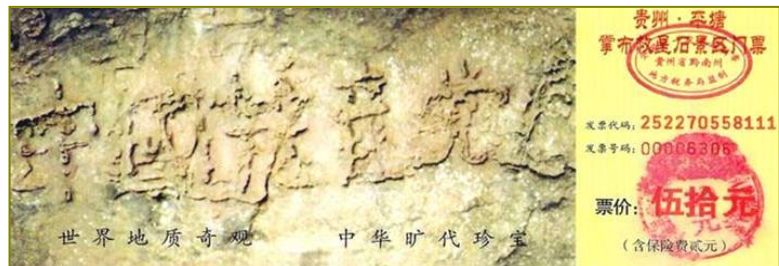 中国共产党
世界地质奇观 中华旷代珍宝
贵州·平塘
掌布救星石景区门票
贵州省黔南州
地方税务局监制
发票代码:252270558111
发票号码:00006306
票价:伍拾元
(含保险费贰元)